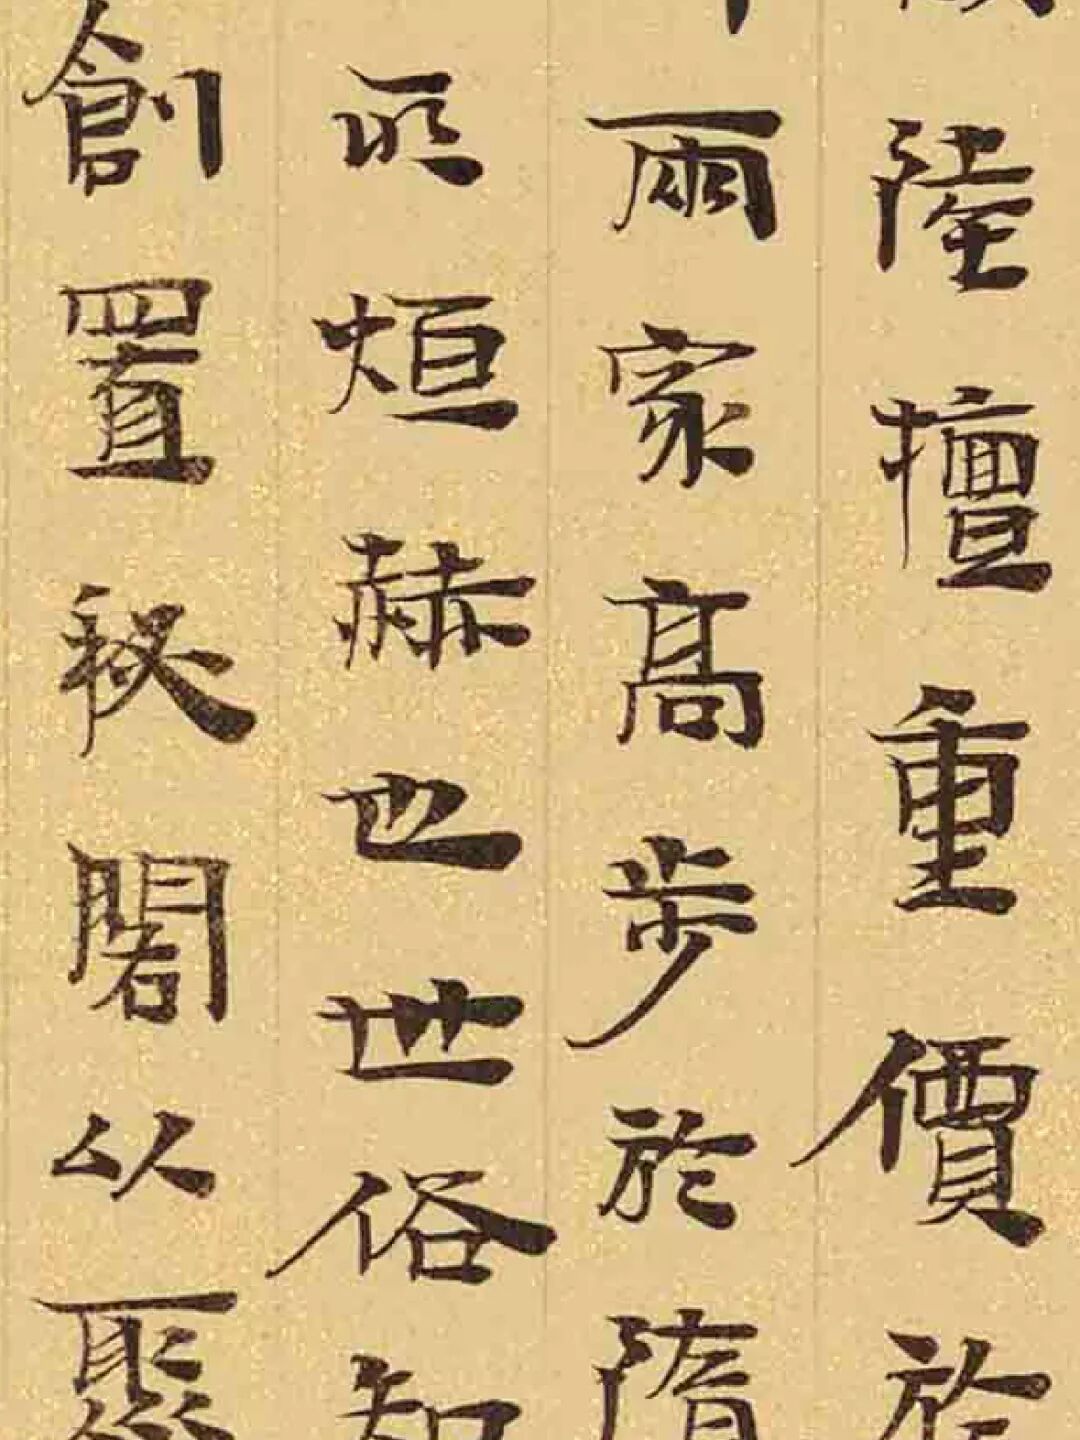 陸擅重價於
兩家高步於隋
所烜赫也世俗知
創置祕閣以聚